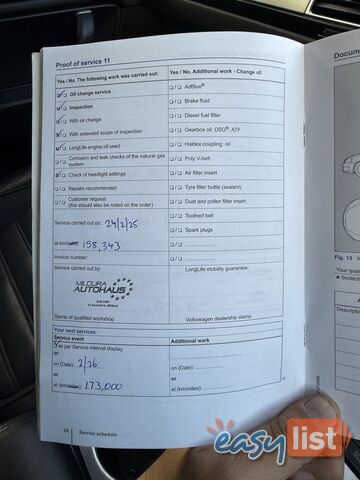 Proof of service 11
Yes / No. The following work was carried out:
Yes / No. Additional work - Change of:
Oil change service
AdBlue®
Inspection
Brake fluid
With oil change
Diesel fuel filter
With extended scope of inspection
Gearbox oil: DSG®, ATF
LongLife engine oil used
Haldex coupling: oil
Corrosion and leak checks of the natural gas
system
Poly V-belt
Check of headlight settings
Air filter insert
Repairs recommended
Tyre filler bottle (sealant)
Customer request
(this should also be noted on the order)
Dust and pollen filter insert
Service carried out on: 24/2/25
Toothed belt
Spark plugs
at km/miles: 158,343
Invoice number:
Service carried out by:
LongLife mobility guarantee:
MILDURA
AUTOHAUS
Stamp of qualified workshop
Volkswagen dealership stamp
Your next services
Service event
Additional work
as per Service interval display
or
on (Date): 2/26
on (Date):
or
or
at (km/miles): 173,000
at (km/miles):
28 Service schedule
Docum
Fig. 13
Your qual
Scratch
Descripti
easy
list